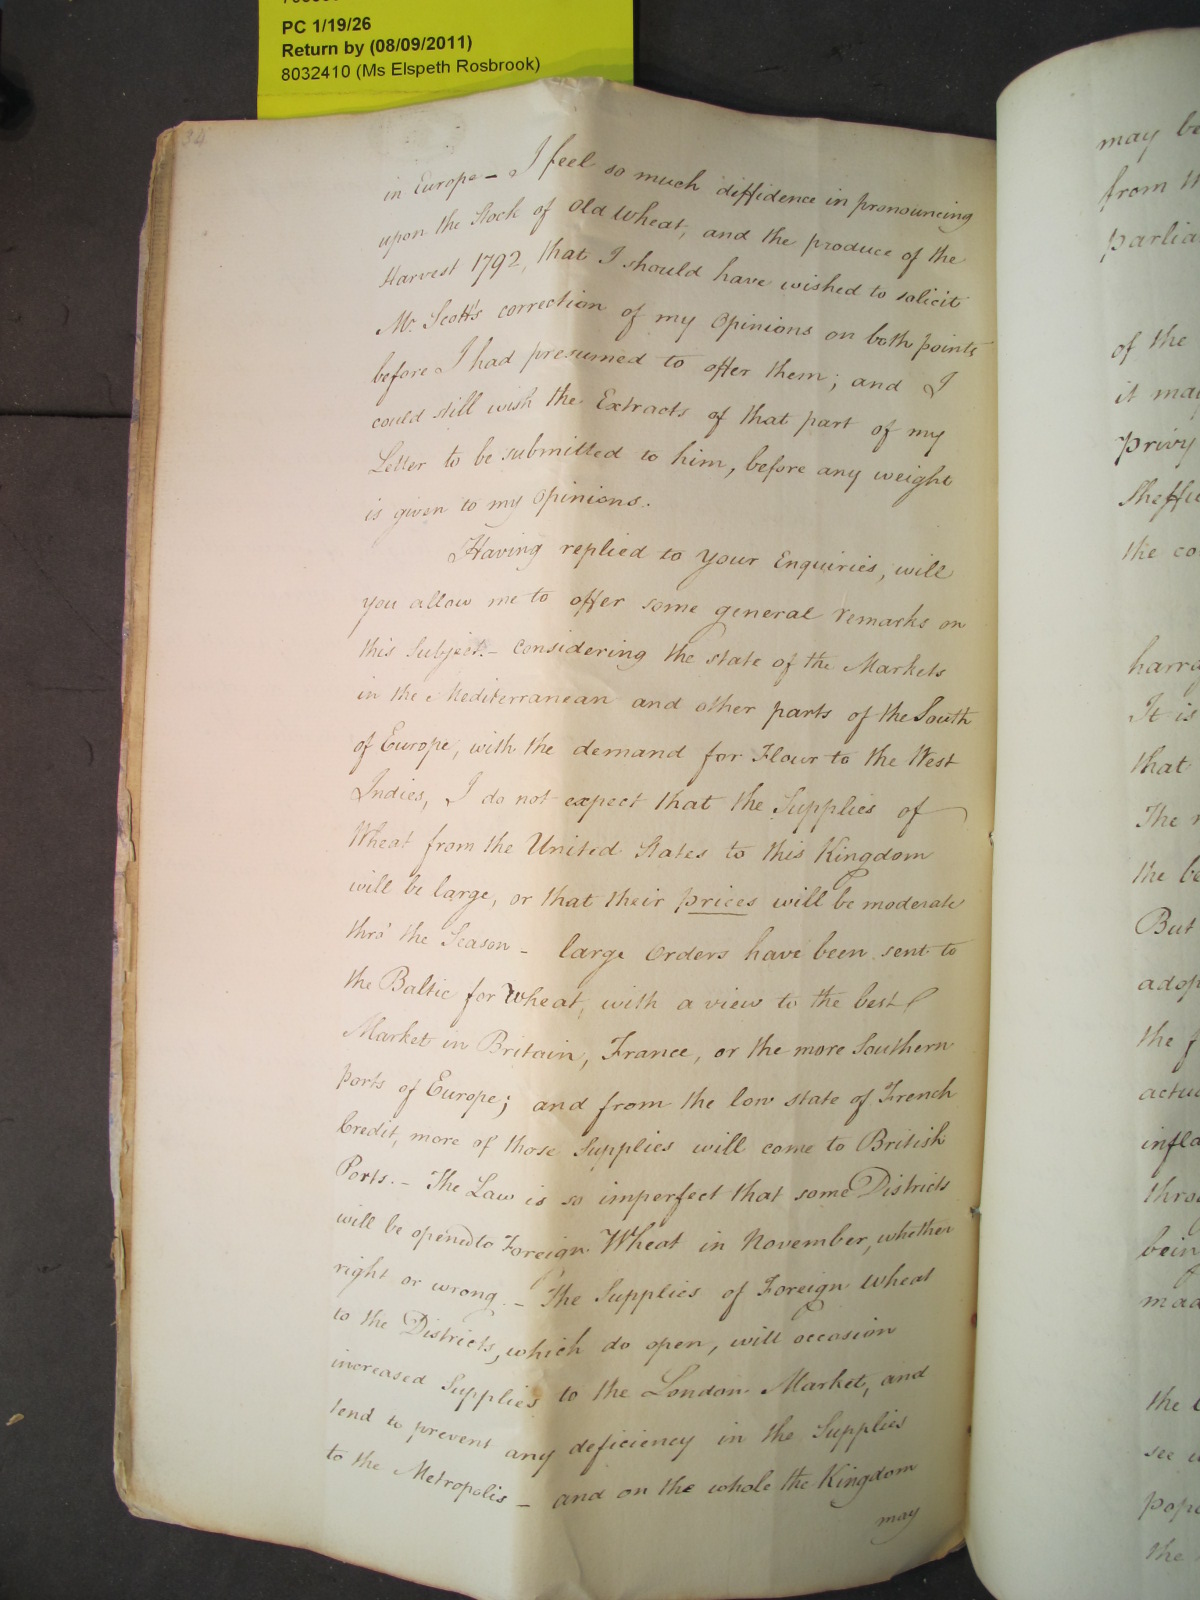 PC 1/19/26
Return by (08/09/2011)
8032410 (Ms Elspeth Rosbrook)
34
in Europe – I feel so much diffidence in pronouncing
upon the Stock of Old Wheat, and the produce of the
Harvest 1792, that I should have wished to solicit
Mr. Scott's correction of my Opinions on both points
before I had presumed to offer them; and I
could still wish the Extracts of that part of my
Letter to be submitted to him, before any weight
is given to my Opinions.
Having replied to your Enquiries, will
you allow me to offer some general remarks on
this Subject. – Considering the state of the Markets
in the Mediterranean and other parts of the South
of Europe, with the demand for Flour to the West
Indies, I do not expect that the Supplies of
Wheat from the United States to this Kingdom
will be large, or that their prices will be moderate
thro' the Season – large Orders have been sent to
the Baltic for Wheat, with a view to the best
Market in Britain, France, or the more Southern
ports of Europe; and from the low state of French
Credit, more of those Supplies will come to British
Ports. – The Law is so imperfect that some Districts
will be opened to Foreign Wheat in November, whether
right or wrong. – The Supplies of Foreign Wheat
to the Districts, which do open, will occasion
increased Supplies to the London Market, and
tend to prevent any deficiency in the Supplies
to the Metropolis – and on the whole the Kingdom
may
may be
from
of the
it may
Privy
the
It is
that
The
the
But
the
the
see
the